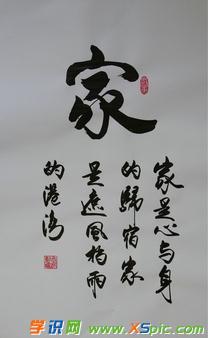 家
家是心与身
的歸宿家
是遮风挡雨
的港湾
学识网
www.XSpic.com